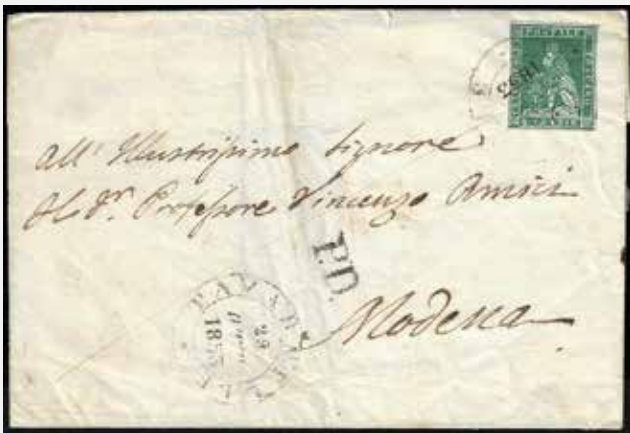 POSTALE
1853
all' Illustrissimo Signore
Il Dr. Professore Vincenzo Amici
P.D.
Modena
29
18